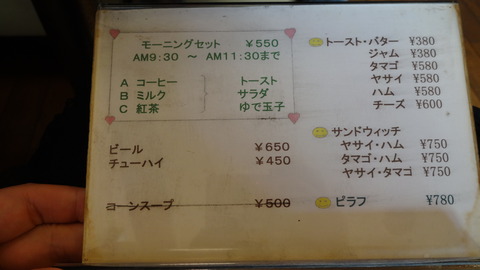 モーニングセット ¥550
AM9:30 ～ AM11:30まで
A コーヒー トースト
B ミルク サラダ
C 紅茶 ゆで玉子
ビール ¥650
チューハイ ¥450
コーンスープ ¥500
トースト・バター ¥380
ジャム ¥380
タマゴ ¥580
ヤサイ ¥580
ハム ¥580
チーズ ¥600
サンドウィッチ
ヤサイ・ハム ¥750
タマゴ・ハム ¥750
ヤサイ・タマゴ ¥750
ピラフ ¥780